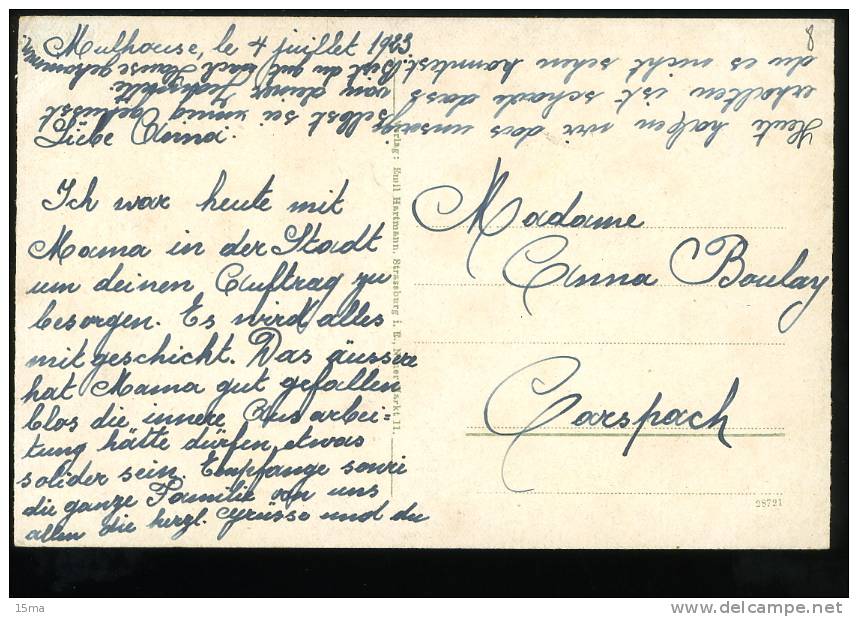 Mulhouse, le 4 juillet 1923
Liebe Anna.
Ich war heute mit
Mama in der Stadt
um deinen Auftrag zu
besorgen. Es wird alles
mitgeschickt. Das äussere
hat Mama gut gefallen
blos die innere Ausarbei-
tung hätte dürfen etwas
solider sein. Empfange sowie
die ganze Familie von uns
allen die herzl. Grüsse und du
selbst sei innig geküsst
von deiner
Bist du gut nach Hause gekommen
Heute haben wir das unsrige
erhalten ist schade dass
du es nicht sehen konntest.
Madame
Anna Boulay
Carspach
Verlag: Emil Hartmann, Strassburg i. E., Neuer Markt 11.
28721
8
15ma
delcampe.net